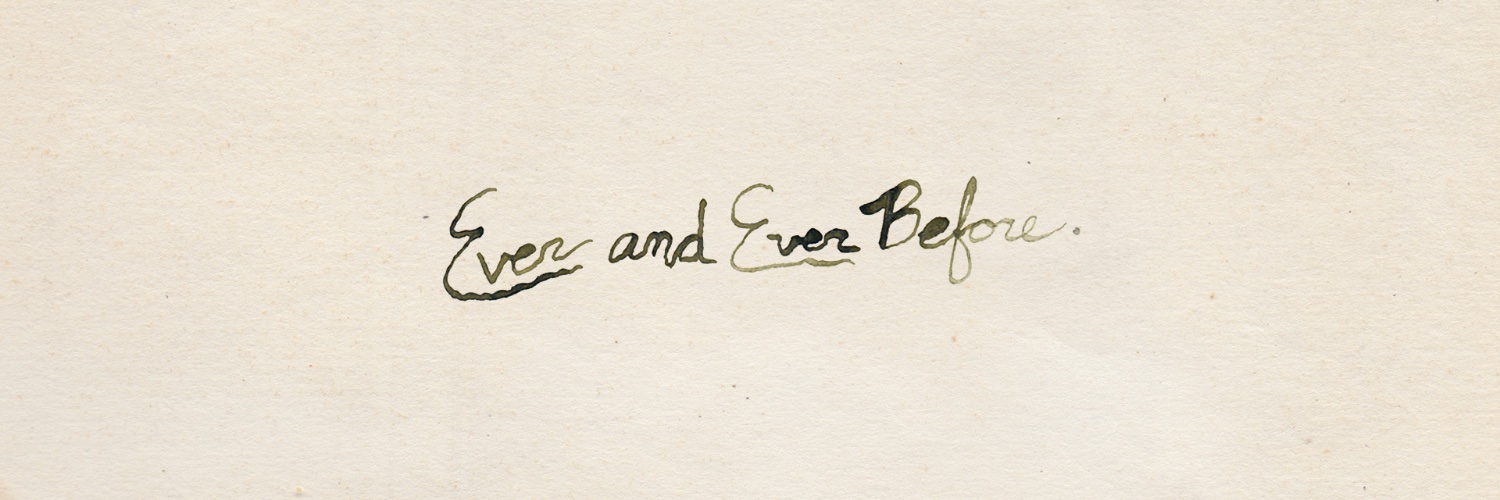 Ever and Ever Before.